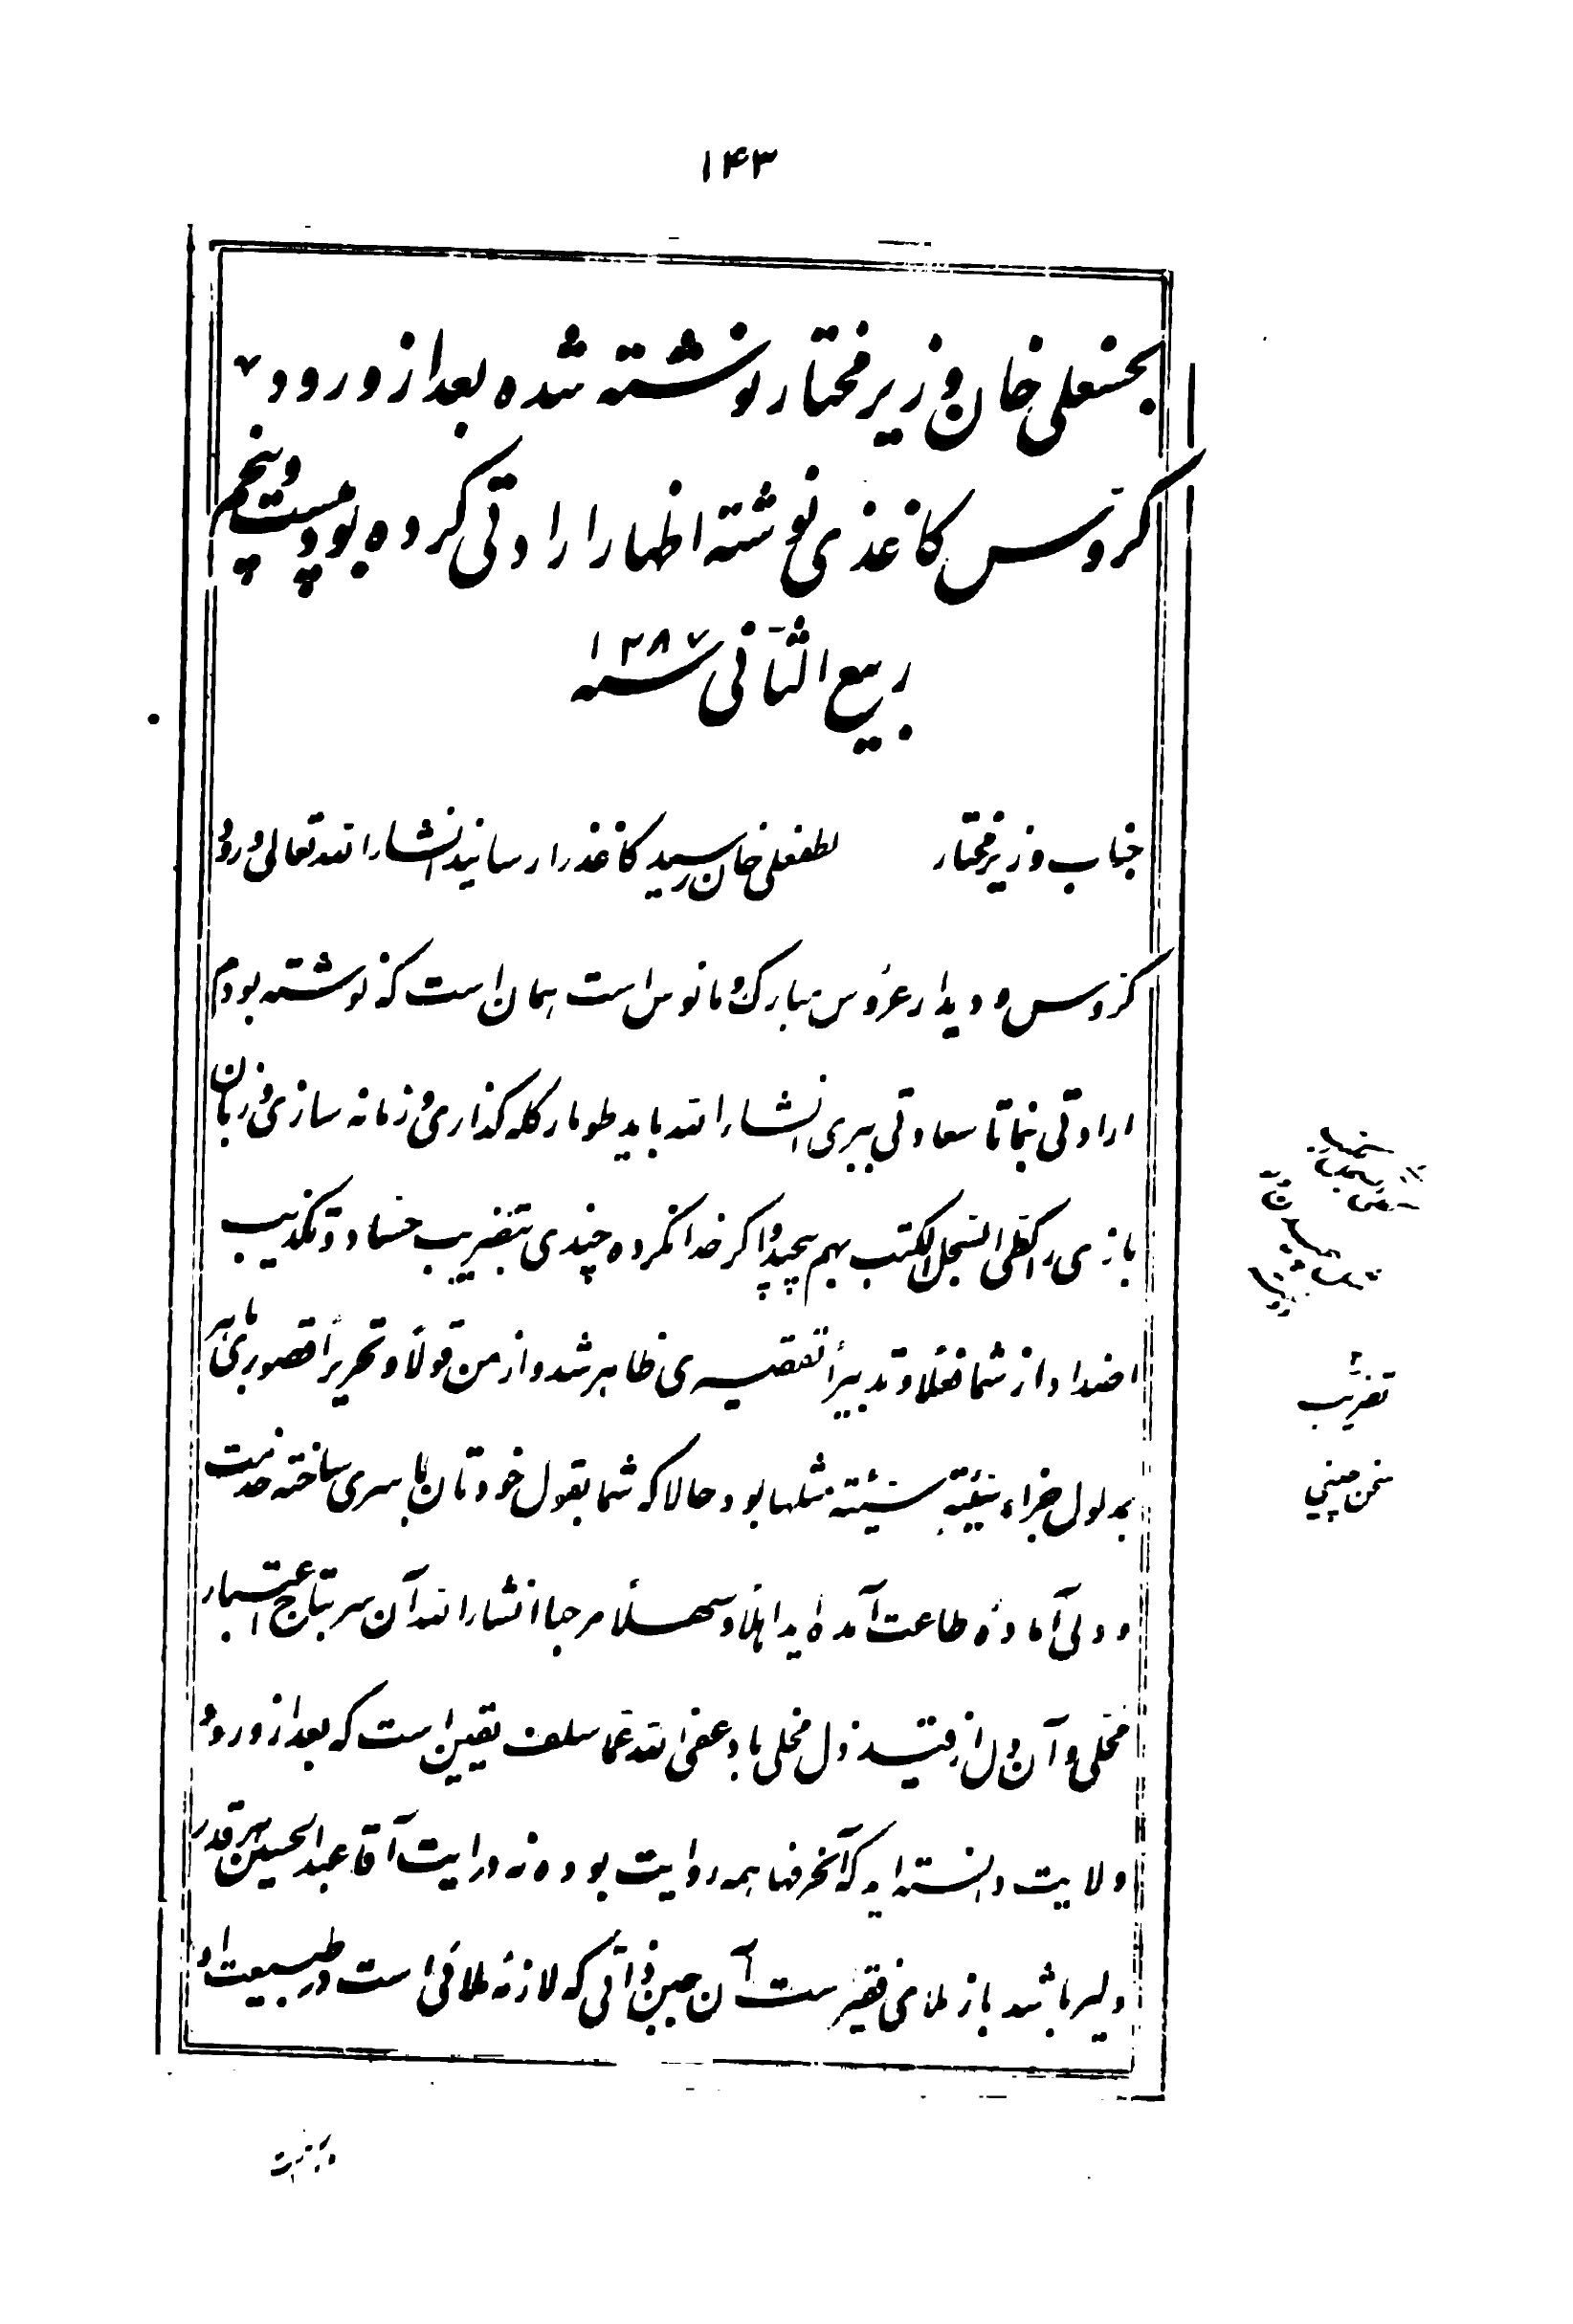 ۱۴۳
بحسنعلی خان وزیر مختار نوشته شده بعد از ورود
کروس کاغذی نوشته اظهار ارادتی کرده بود بیست و پنجم
ربیع الثانی سنه ۱۲۸۷
جناب وزیر مختار لطفعلی خان رسید کاغذ را رسانید انشاء الله تعالی ورود
کروس و دیدار عروس مبارک و مانوس است همان است که نوشته بودم
ارادتی بنما تا سعادتی ببری انشاء الله باید طومار گله گذاری و زمانه سازی و زبان
بازی را کطی السجل للکتب بهم پیچید و اگر خدا نکرده چندی بتضریب حساد و تکذیب
اضداد از شما فعلاً و تدبیراً تقصیری ظاهر شد و از من قولاً و تحریراً قصوری بنا بر
بمدلول جزاء سیئة سیئة مثلها بود حالا که شما بقول خودتان با سری ساخته خدمت
و دلی آماده طاعت آمده اید اهلاً و سهلاً مرحبا انشاء الله آن سر بتاج اعتبار
محلی و آن دل از قید ذل مخلی باد عفی الله عما سلف یقین است که بعد از ورود
ولایت دانسته اید که آنحرفها همه روایت بوده نه درایت آقا عبدالحسین هر قدر
دلیر باشد باز ملای فقیر است آن جبن ذاتی که لازمه ملائی است در طبیعت او
تضریب
سخن چینی